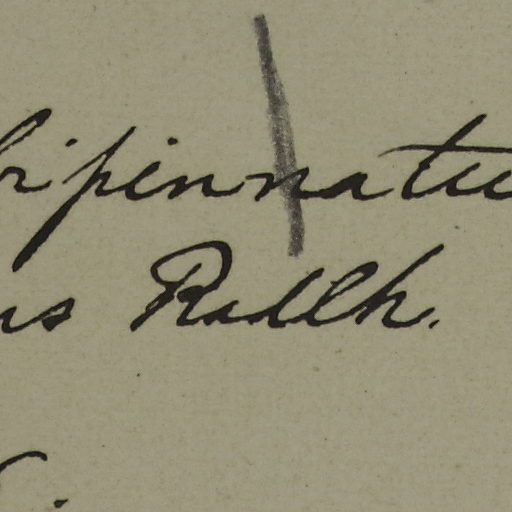 bipinnatu
us Radlk.